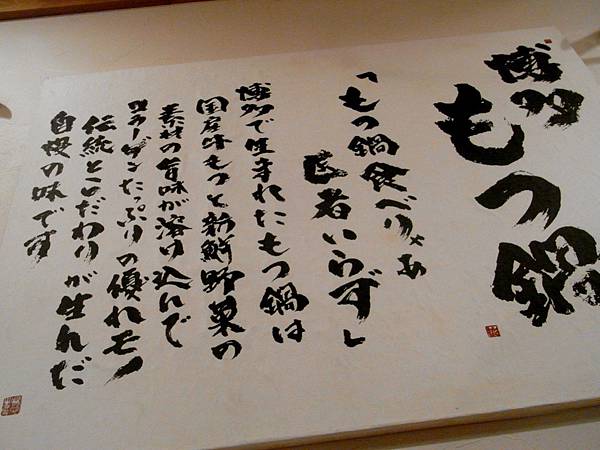 博多
もつ鍋
「もつ鍋食べりゃあ
医者いらず」
博多で生まれたもつ鍋は
国産牛もつと新鮮野菜の
素材の旨味が溶け込んで
コラーゲンたっぷりの優れモノ
伝統とこだわりが生んだ
自慢の味です